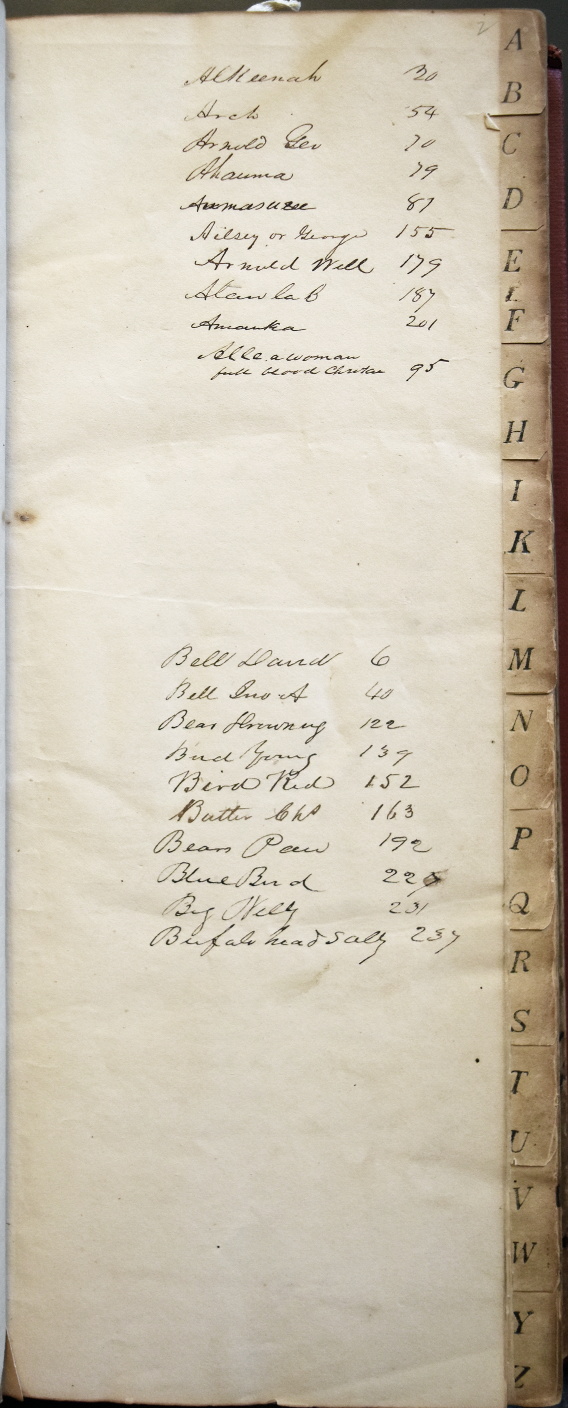 2
Alkeenah 30
Arch 54
Arnold Geo 70
Ahauma 79
87
Ailsey or George 155
Arnold Will 179
187
Amauka 201
Alle a woman
full blood 95
Bell David 6
Bell Jno A 40
Bear Drowning 122
Bird Young 139
Bird Kid 152
Butler Chs 163
Bears Paw 192
Blue Bird 22
Big Willy 231
Bufalo head Sally 237
A
B
C
D
E
F
G
H
I
K
L
M
N
O
P
Q
R
S
T
U
V
W
Y
Z